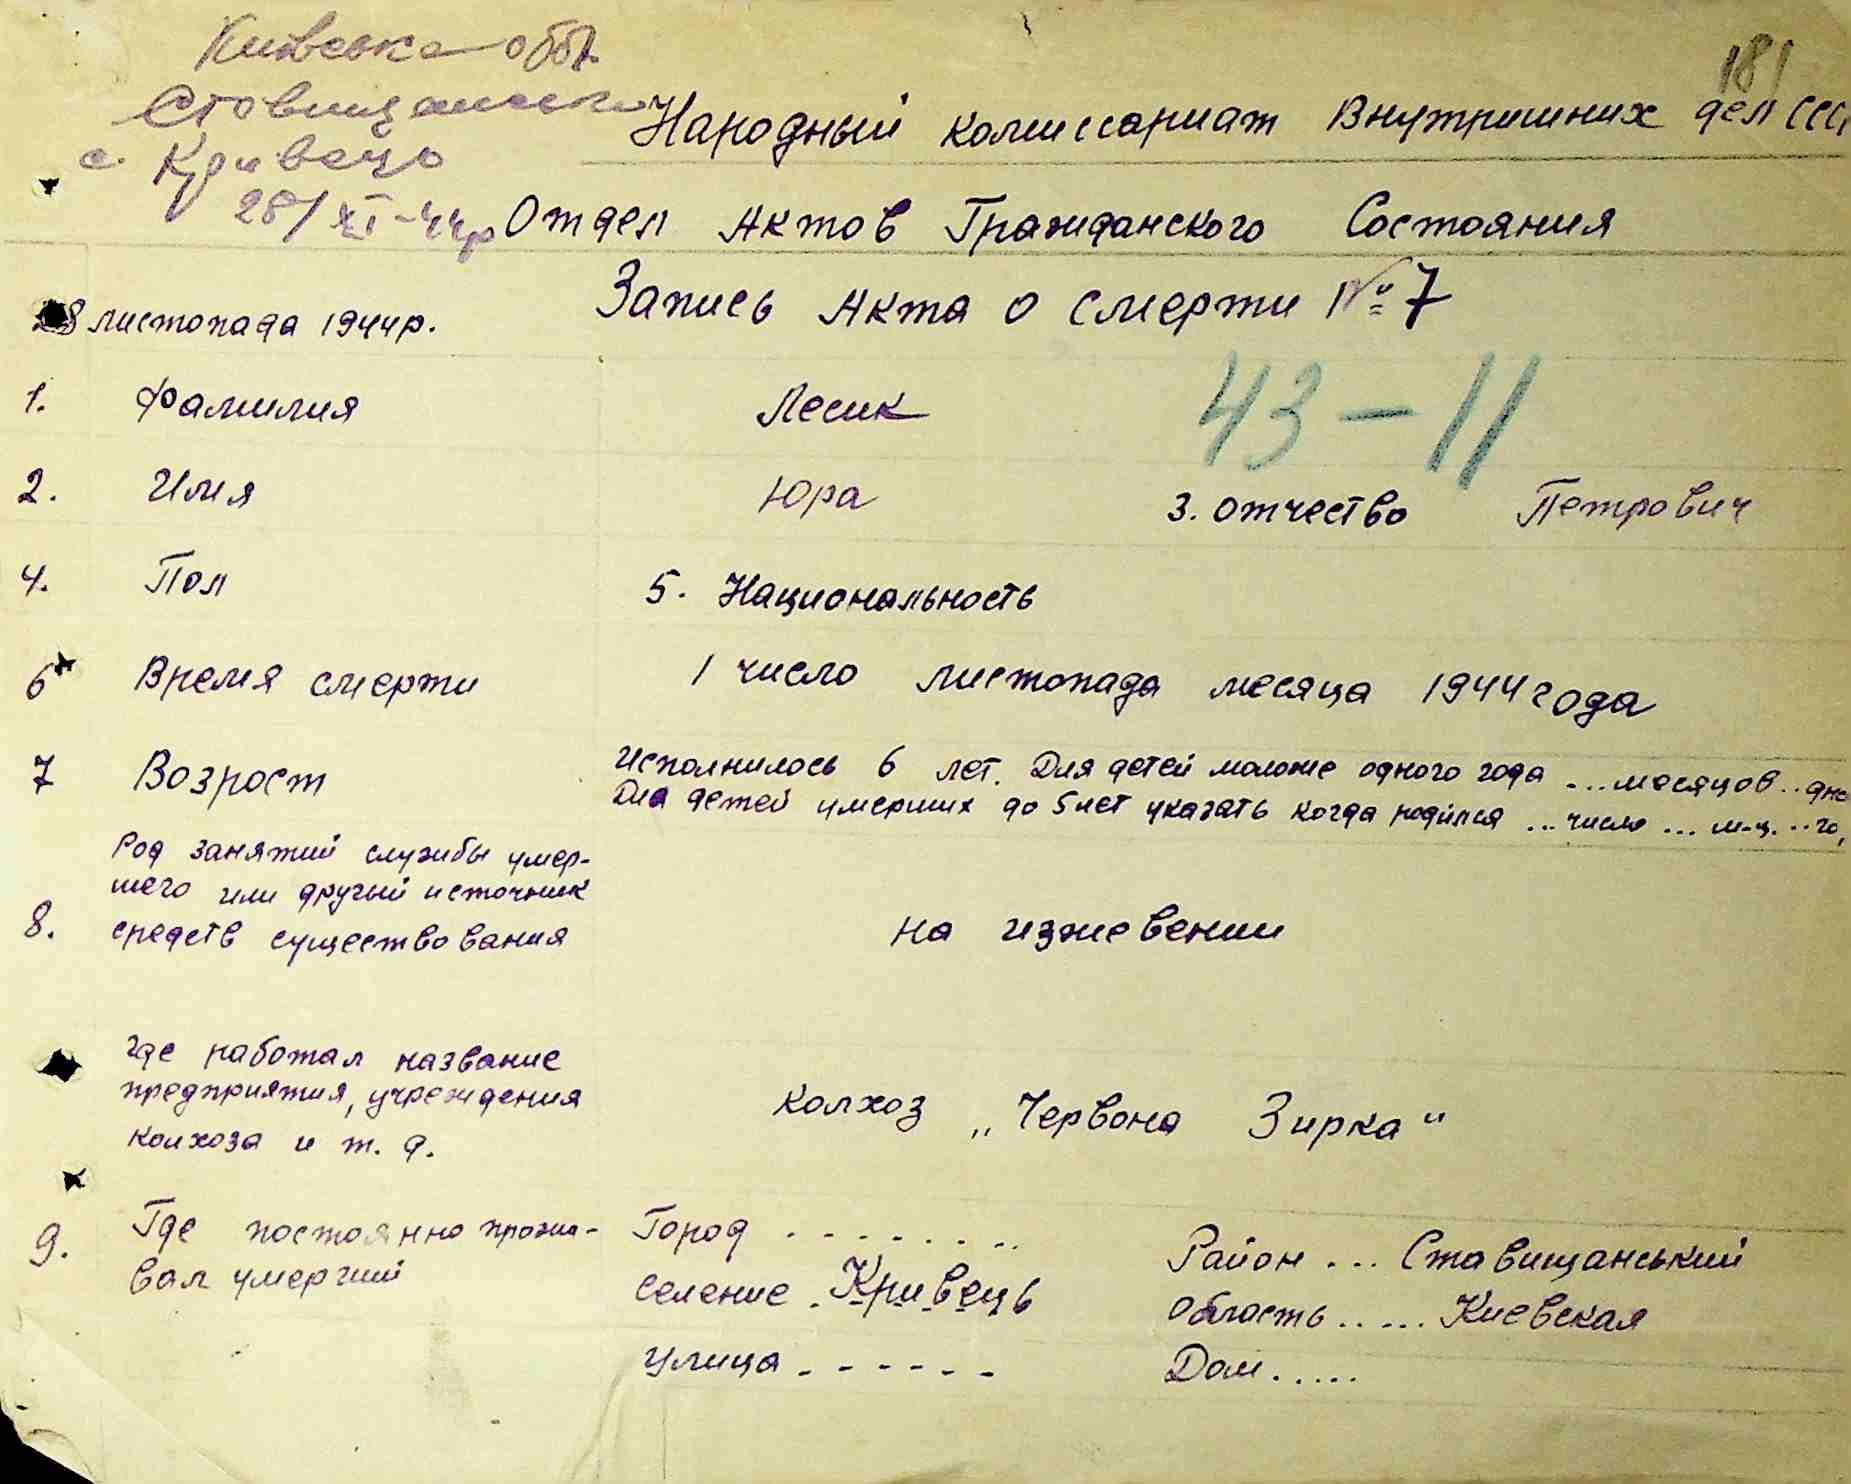 Київська обл.
Ставищанський
с. Кривець
28/XI-44р
181
Народный комиссариат Внутришних дел ССС
Отдел Актов Гражданского Состояния
Запись Акта о смерти № 7
28 листопада 1944р.
43-11
1. Фамилия Лесик
2. Имя Юра 3. Отчество Петрович
4. Пол 5. Национальность
6 Время смерти 1 число листопада месяца 1944 года
7 Возрост Исполнилось 6 лет. Для детей моложе одного года ... месяцов .. дне
Для детей умерших до 5 лет указать когда родился ... число ... м-ц. .. го,
Род занятий службы умер-
шего или другый источник
8. средств существования на изжевении
Где работал название
предприятия, учреждения
колхоза и т. д. Колхоз „Червона Зирка"
9. Где постоянно прожи-
вал умерший
Город . . . . . . . .
Район ... Ставищанський
Селение . Кривець
Область ..... Киевская
Улица . - - - - -
Дом .....